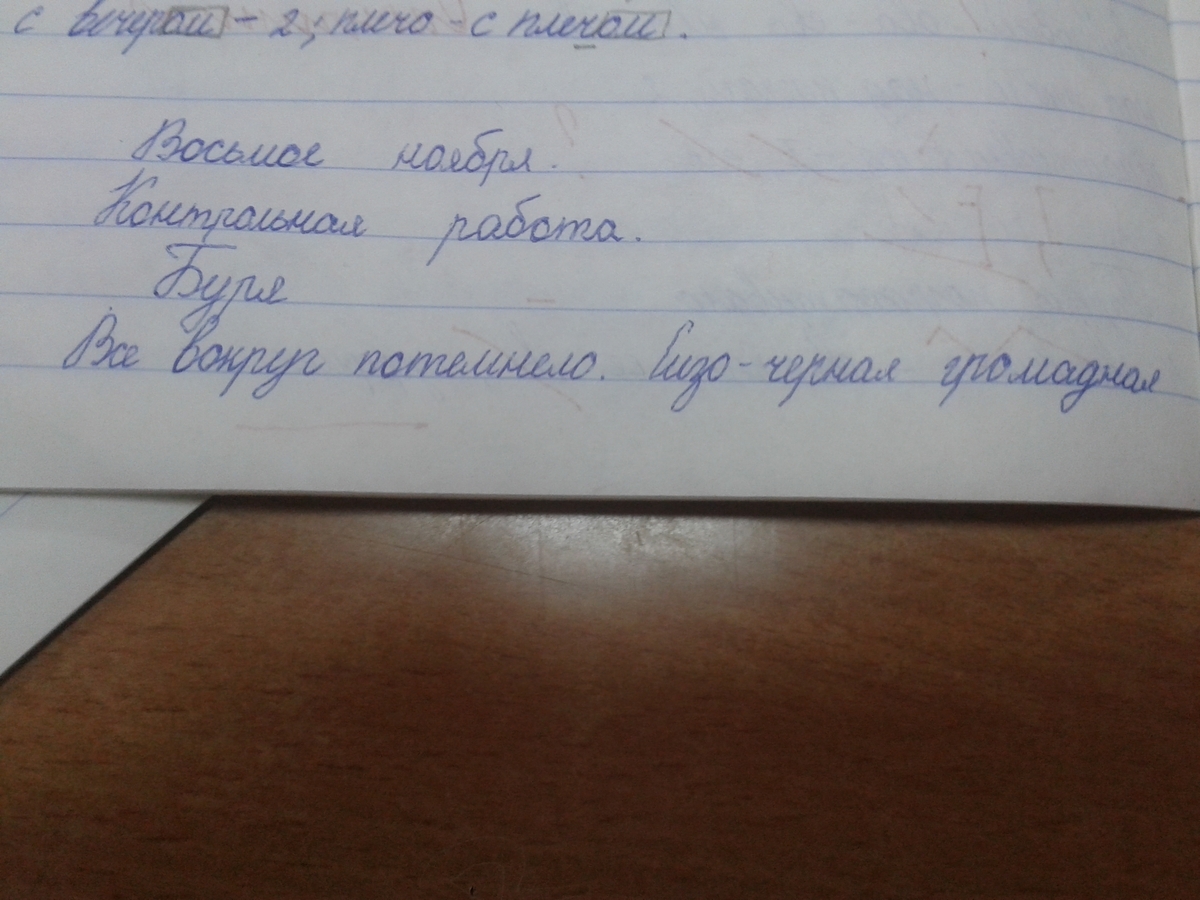 с вечером - 2; плечо - с плечом.
Восьмое ноября.
Контрольная работа.
Буря
Все вокруг потемнело. Сизо-черная громадная